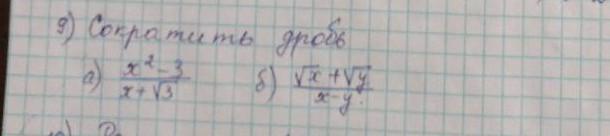 9) Сократить дробь
а) x²-3 / x+√3 б) √x+√y / x-y.